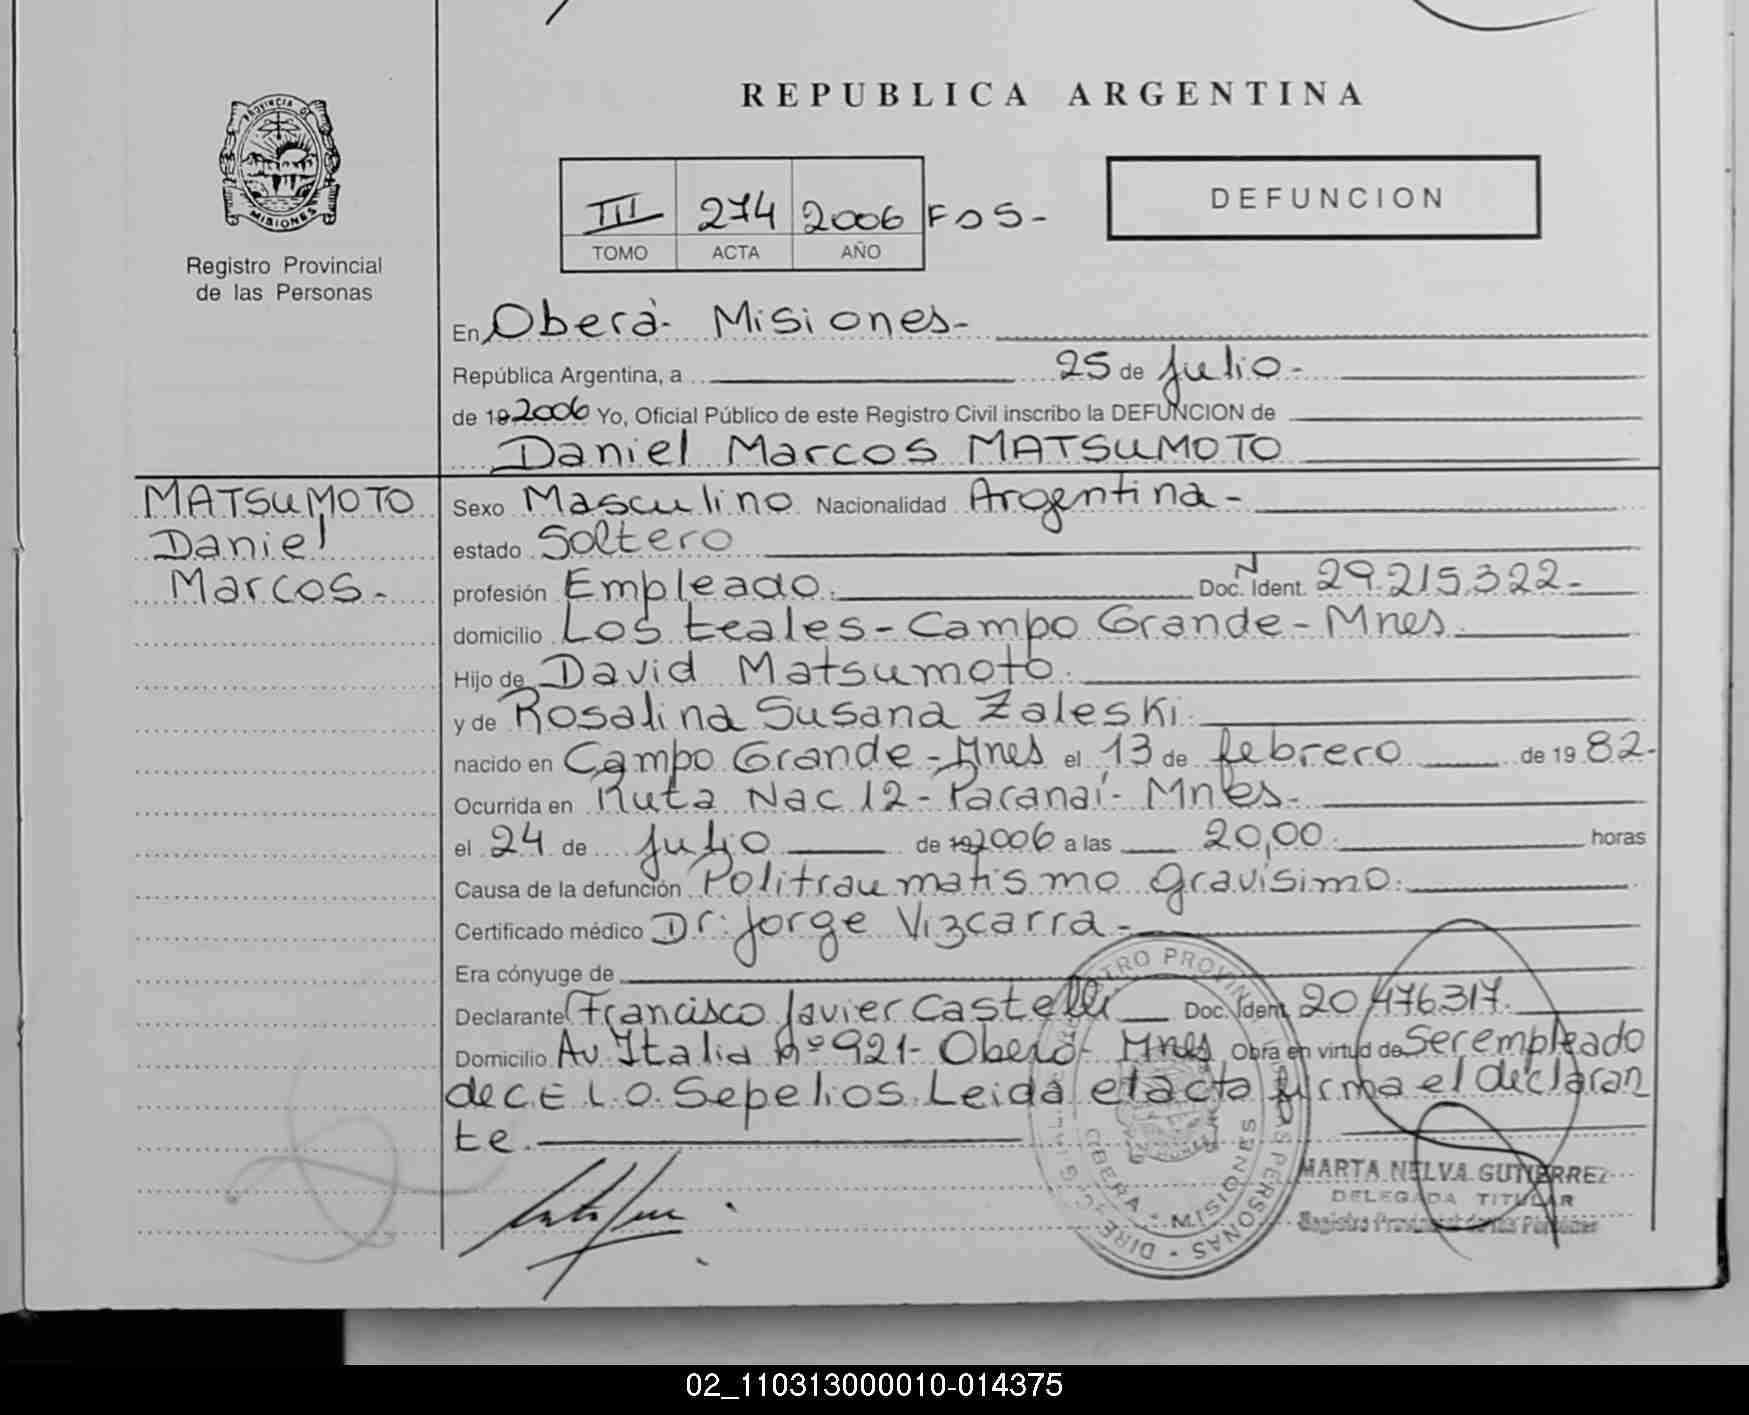 REPUBLICA ARGENTINA
PROVINCIA DE
MISIONES
Registro Provincial
de las Personas
III 274 2006 FDS-
TOMO ACTA AÑO
DEFUNCION
En Oberà- Misiones-
República Argentina, a 25 de julio-
de 19 2006 Yo, Oficial Público de este Registro Civil inscribo la DEFUNCION de
Daniel Marcos MATSUMOTO
MATSUMOTO
Daniel
Marcos.-
Sexo Masculino Nacionalidad Argentina-
estado Soltero
profesión Empleado. Doc. N Ident. 29.215.322-
domicilio Los teales-Campo Grande-Mnes.
Hijo de David Matsumoto.
y de Rosalina Susana Zaleski.
nacido en Campo Grande-Mnes el 13 de febrero de 19 82-
Ocurrida en Ruta Nac 12-Paranaí- Mnes-
el 24 de julio de 19 2006 a las 20,00. horas
Causa de la defunción Politraumatismo gravísimo.
Certificado médico Dr. Jorge Vizcarra-
Era cónyuge de
Declarante Francisco Javier Castelli Doc. Ident. 20.476.317.
Domicilio Av Italia nº 921- Oberá- Mnes Obra en virtud de Ser empleado
de C.E.L.O. Sepelios. Leida el acta firma el declaran
te.
MARTA NELVA GUTIERREZ
DELEGADA TITULAR
Registro Provincial de las Personas
OBERA - MISIONES
02_110313000010-014375